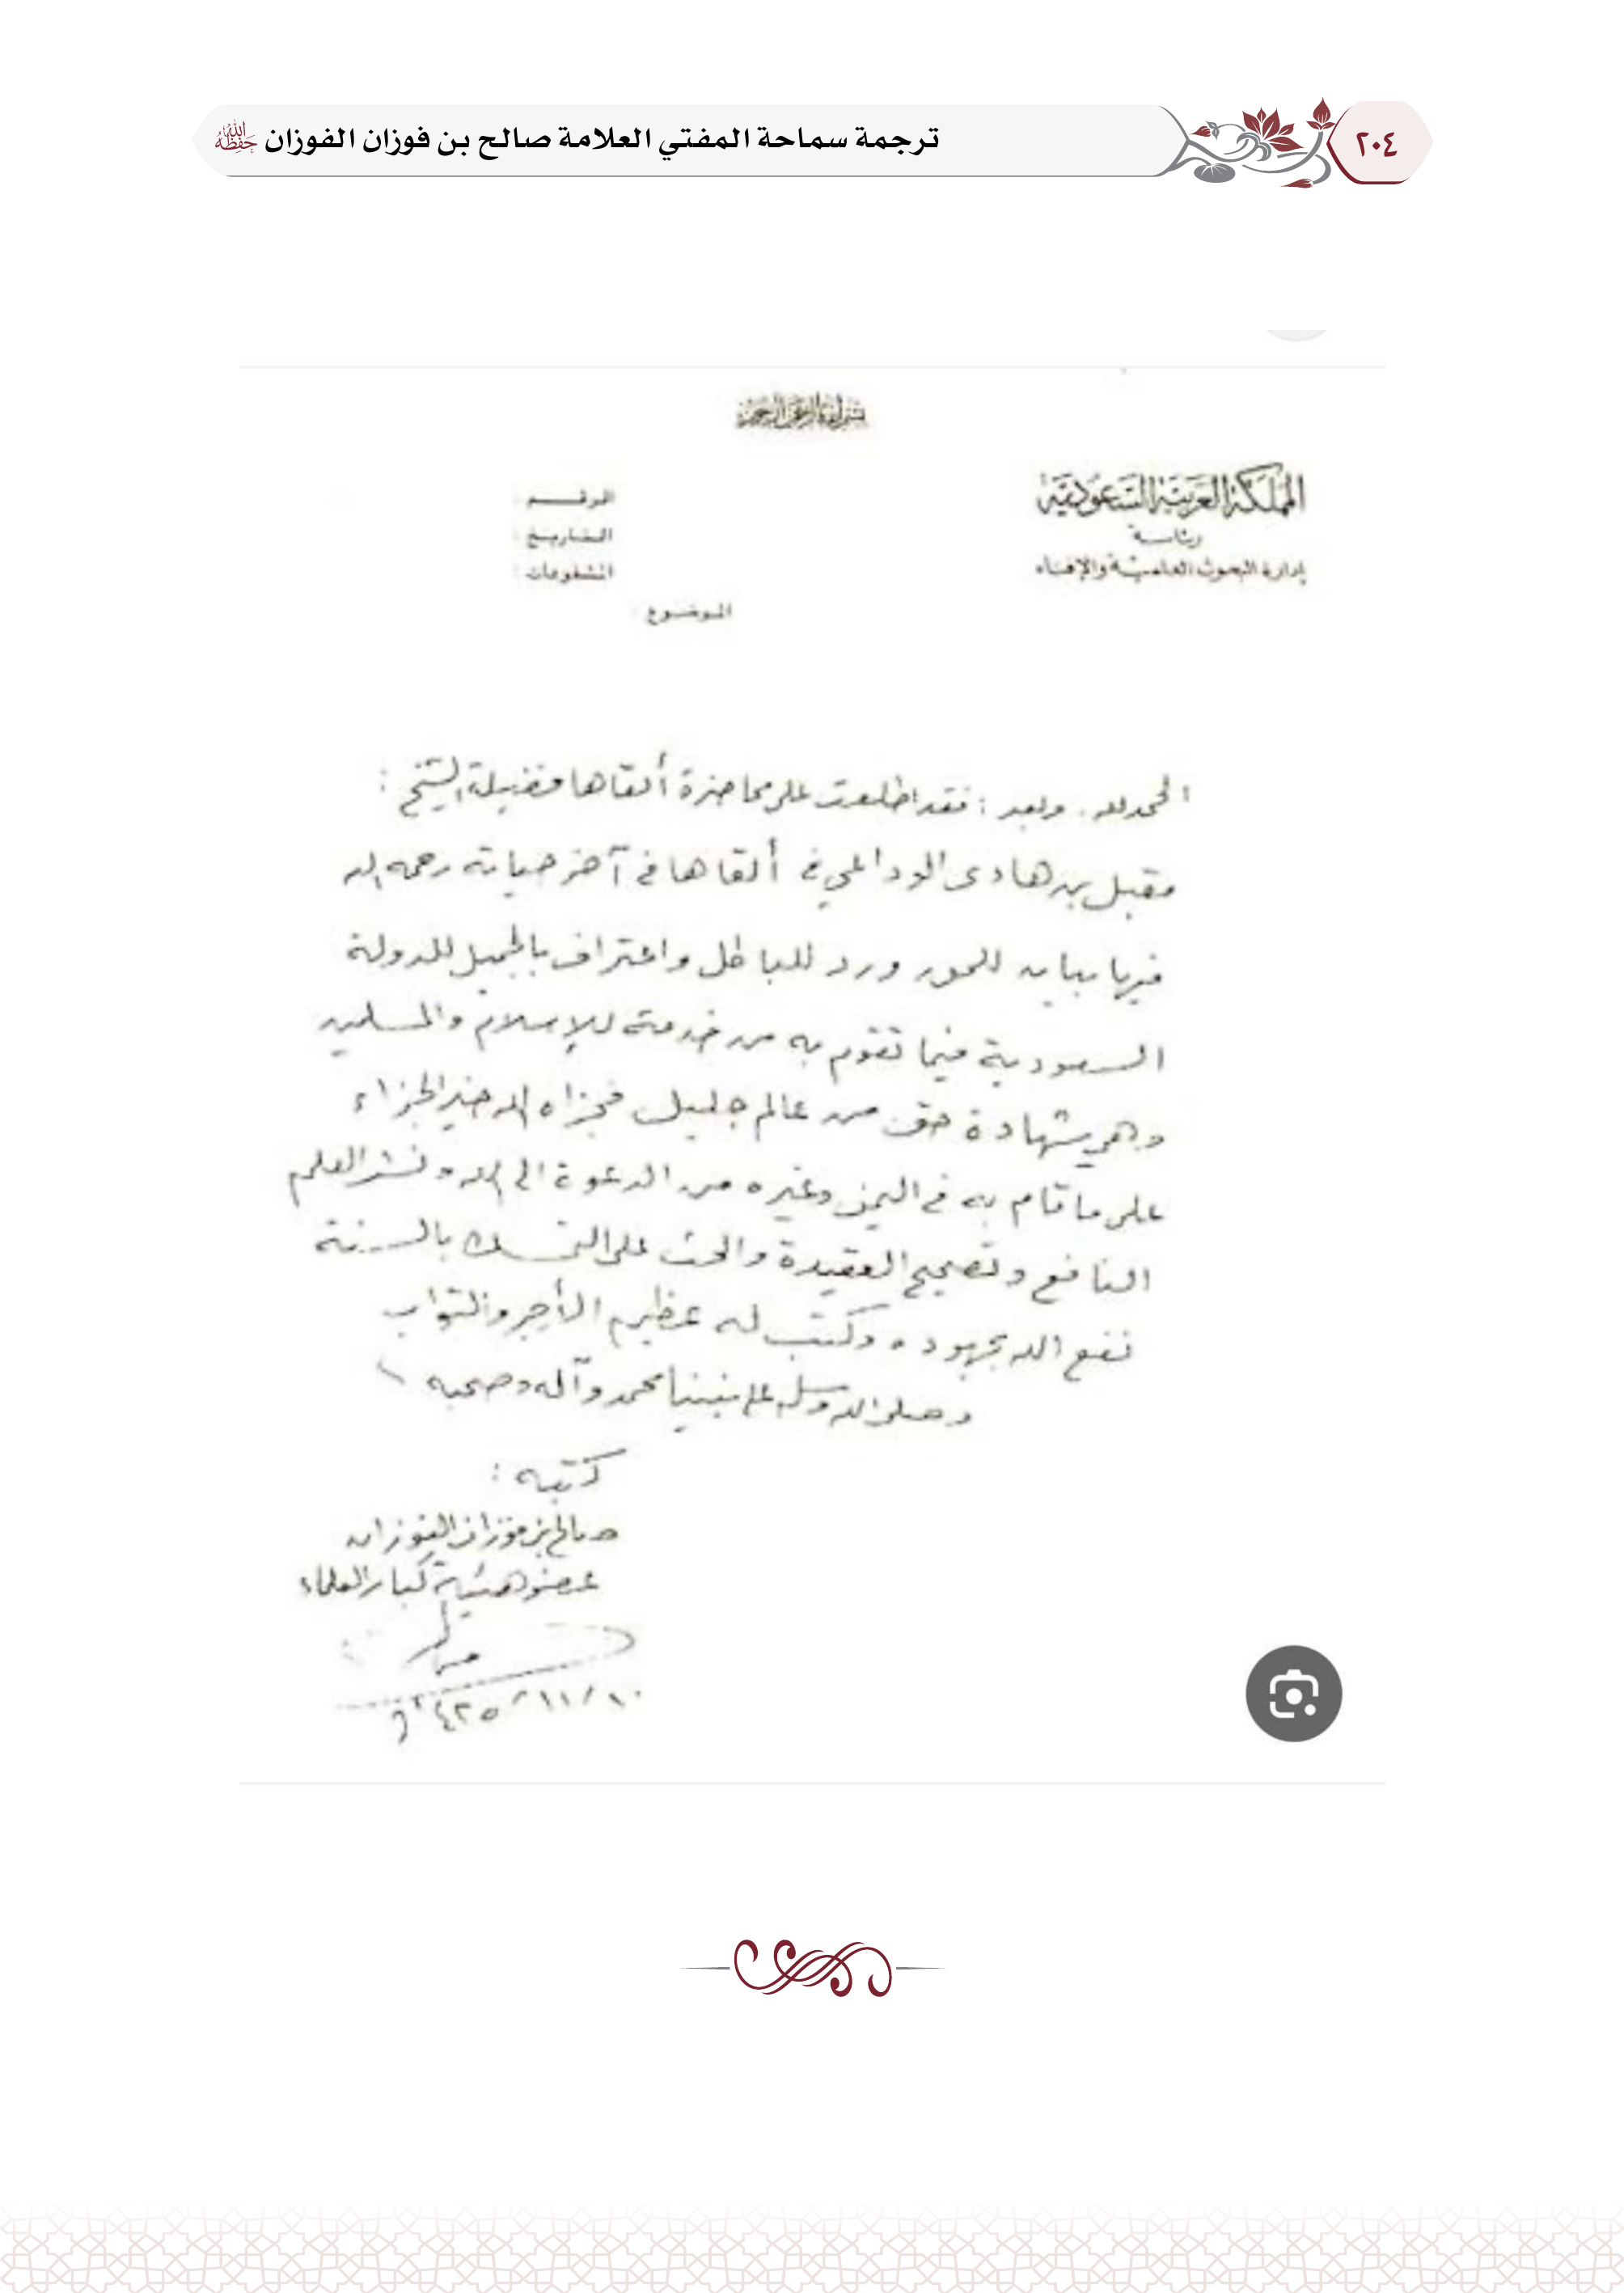 ٢٠٤
ترجمة سماحة المفتي العلامة صالح بن فوزان الفوزان حفظه الله
بسم الله الرحمن الرحيم
المملكة العربية السعودية
رئاسة
إدارة البحوث العلمية والإفتاء
الرقم
التاريخ
المشفوعات
الموضوع
الحمد لله. وبعد: فقد اطلعت على محاضرة ألقاها فضيلة الشيخ:
مقبل بن هادي الوداعي في ألقاها في آخر حياته رحمه الله
فيها بيان للحق ورد للباطل واعتراف بالجميل للدولة
السعودية فيما تقوم به من خدمة للإسلام والمسلمين
وهي شهادة حق من عالم جليل فجزاه الله خير الجزاء
على ما قام به في اليمن وغيره من الدعوة الى الله ونشر العلم
النافع وتصحيح العقيدة والحث على التمسك بالسنة
نفع الله بجهوده وكتب له عظيم الأجر والثواب
وصلى الله وسلم على نبينا محمد وآله وصحبه
كتبه:
صالح بن فوزان الفوزان
عضو هيئة كبار العلماء
١٠/١١/١٤٢٥هـ